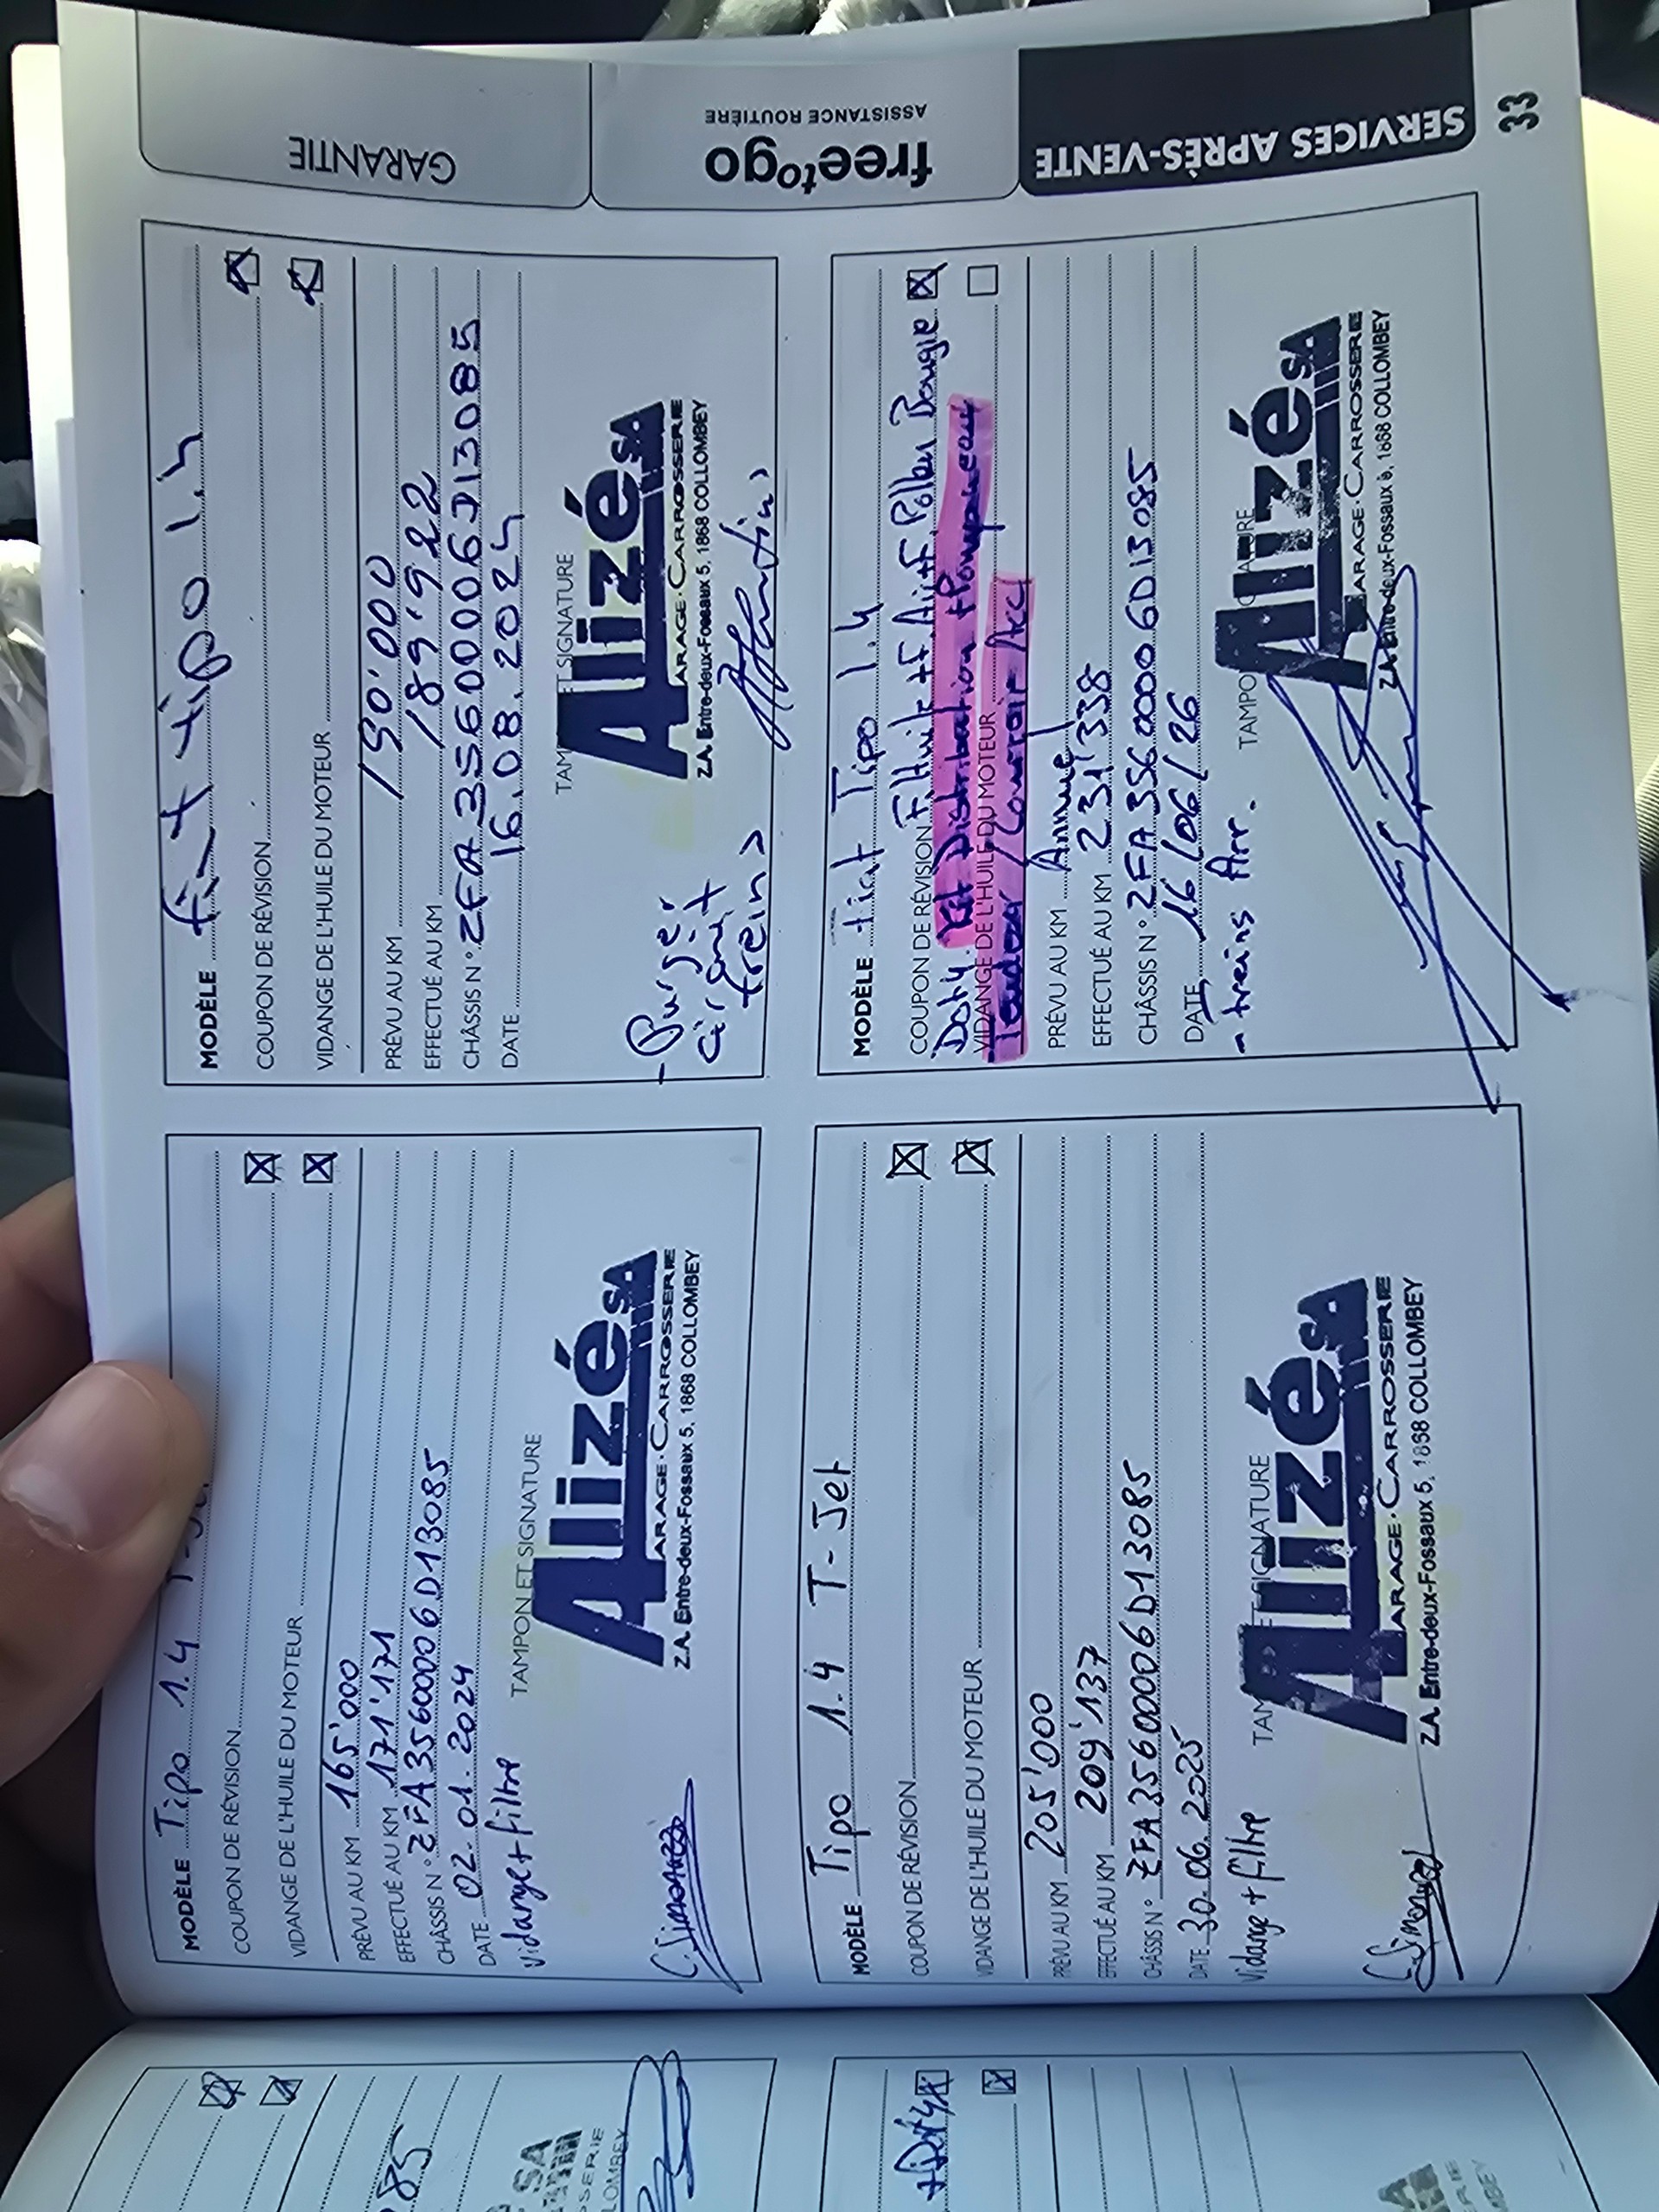 GARANTIE
free to go
ASSISTANCE ROUTIÈRE
SERVICES APRÈS-VENTE
33
MODÈLE Tipo 1.4
COUPON DE RÉVISION
VIDANGE DE L'HUILE DU MOTEUR
PRÉVU AU KM 165'000
EFFECTUÉ AU KM 171'171
CHÂSSIS N° ZFA3560006D13085
DATE 02.01.2024
Vidange + filtre
TAMPON ET SIGNATURE
Alizé SA
GARAGE · CARROSSERIE
Z.A. Entre-deux-Fossaux 5, 1868 COLLOMBEY
MODÈLE fiat tipo 1.4
COUPON DE RÉVISION
VIDANGE DE L'HUILE DU MOTEUR
PRÉVU AU KM 190'000
EFFECTUÉ AU KM 189'922
CHÂSSIS N° ZFA3560006D13085
DATE 16.08.2024
TAMPON ET SIGNATURE
- Purger
circuit
freins
Alizé SA
GARAGE · CARROSSERIE
Z.A. Entre-deux-Fossaux 5, 1868 COLLOMBEY
MODÈLE Tipo 1.4 T-Jet
COUPON DE RÉVISION
VIDANGE DE L'HUILE DU MOTEUR
PRÉVU AU KM 205'000
EFFECTUÉ AU KM 209'137
CHÂSSIS N° ZFA3560006D13085
DATE 30.06.2025
Vidange + filtre
TAMPON ET SIGNATURE
Alizé SA
GARAGE · CARROSSERIE
Z.A. Entre-deux-Fossaux 5, 1868 COLLOMBEY
MODÈLE fiat Tipo 1.4
COUPON DE RÉVISION F. Huile + F. Air + F. Pollen Bougie
Kit Distribution + Pompe eau
VIDANGE DE L'HUILE DU MOTEUR
Courroie Acc
PRÉVU AU KM Annuel
EFFECTUÉ AU KM 231'338
CHÂSSIS N° ZFA3560006D13085
DATE 16/06/26
- freins Arr.
TAMPON
Alizé SA
GARAGE · CARROSSERIE
Z.A. Entre-deux-Fossaux 5, 1868 COLLOMBEY